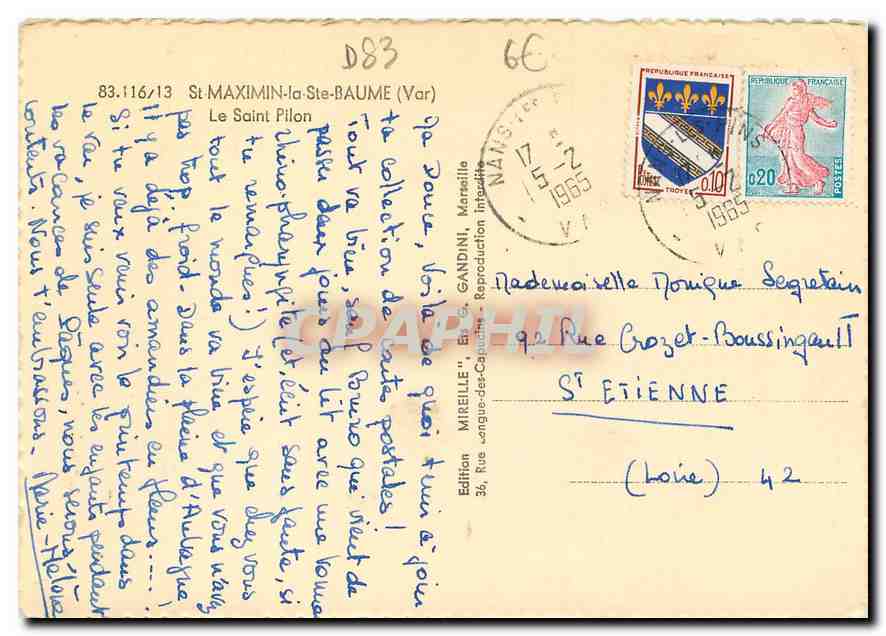 D83
6€
83.116/13 St-MAXIMIN-la-Ste-BAUME (Var)
Le Saint Pilon
REPUBLIQUE FRANÇAISE
TROYES
0.10
REPUBLIQUE FRANÇAISE
0,20
POSTES
NANS-les
17
5-2
1965
VAR
5-2
1965
Ma Douce, Voilà de quoi tenir à jour
ta collection de cartes postales!
Tout va bien, sauf Bruno qui vient de
passer deux jours au lit avec une bonne
rhino-pharyngite (et, écrit sans faute, si
tu remarques!) J'espère que chez vous
tout le monde va bien et que vous n'avez
pas trop froid. Dans la plaine d'Aubagne,
Il y a déjà des amandiers en fleurs....!
Si tu veux venir voir le printemps dans
le var, je suis seule avec les enfants pendant
les vacances de Pâques, nous serions
contents. Nous t'embrassons. Marie-Hélène
Edition "MIREILLE", Ets G. GANDINI, Marseille
36, Rue Longue-des-Capucins - Reproduction interdite
CPAPHIL
Mademoiselle Monique Segretain
92 Rue Crozet-Boussingault
St ETIENNE
(Loire) 42